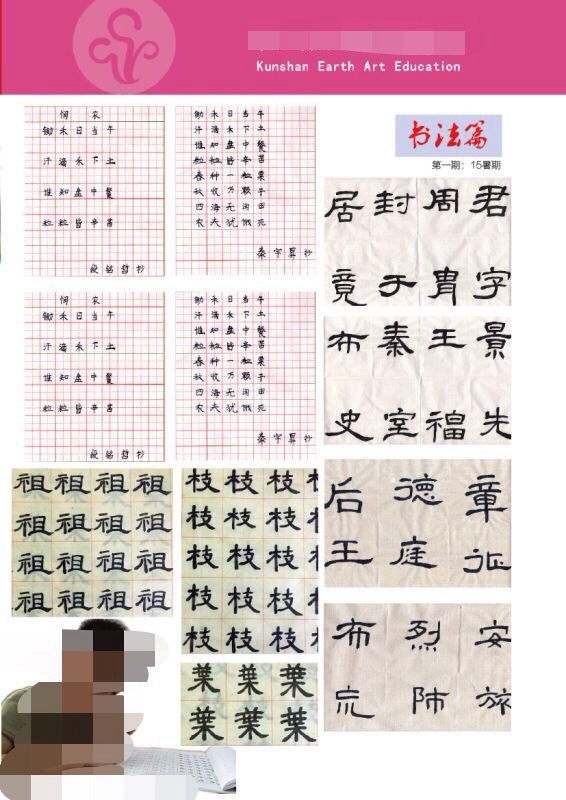 Kunshan Earth Art Education
书法篇
第一期：15暑期
悯 农
锄禾日当午
汗滴禾下土
谁知盘中餐
粒粒皆辛苦
段铭哲抄
锄禾日当午
汗滴禾下土
谁知盘中餐
粒粒皆辛苦
春种一粒粟
秋收万颗子
四海无闲田
农夫犹饿死
秦宇昇抄
悯 农
锄禾日当午
汗滴禾下土
谁知盘中餐
粒粒皆辛苦
段铭哲抄
锄禾日当午
汗滴禾下土
谁知盘中餐
粒粒皆辛苦
春种一粒粟
秋收万颗子
四海无闲田
农夫犹饿死
秦宇昇抄
居封周君
竟于胄字
布秦王景
史室福先
后德章
王庭
布烈安
旅
祖祖祖祖
祖祖祖祖
祖祖祖祖
祖祖祖祖
枝枝枝枝
枝枝枝枝
枝枝枝枝
枝枝枝枝
枝枝枝枝
葉葉葉
葉葉葉